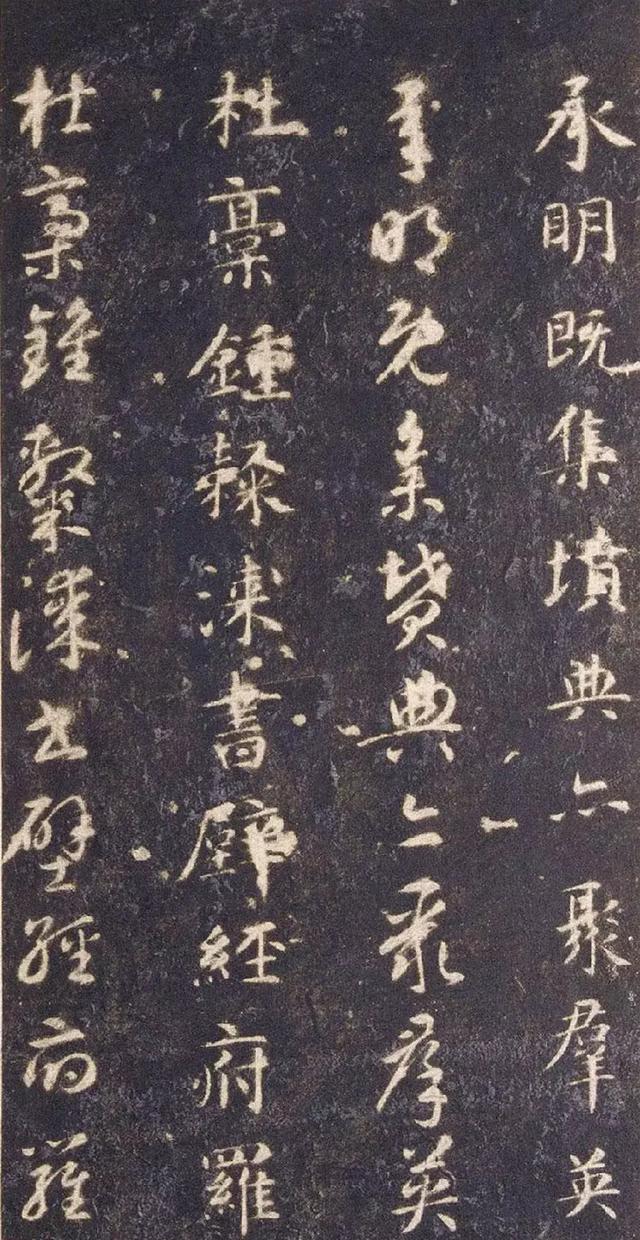 承明既集墳典亦聚群英
承明既集墳典亦聚群英
杜稾鍾隸漆書壁經府羅
杜稾鍾隸漆書壁經府羅